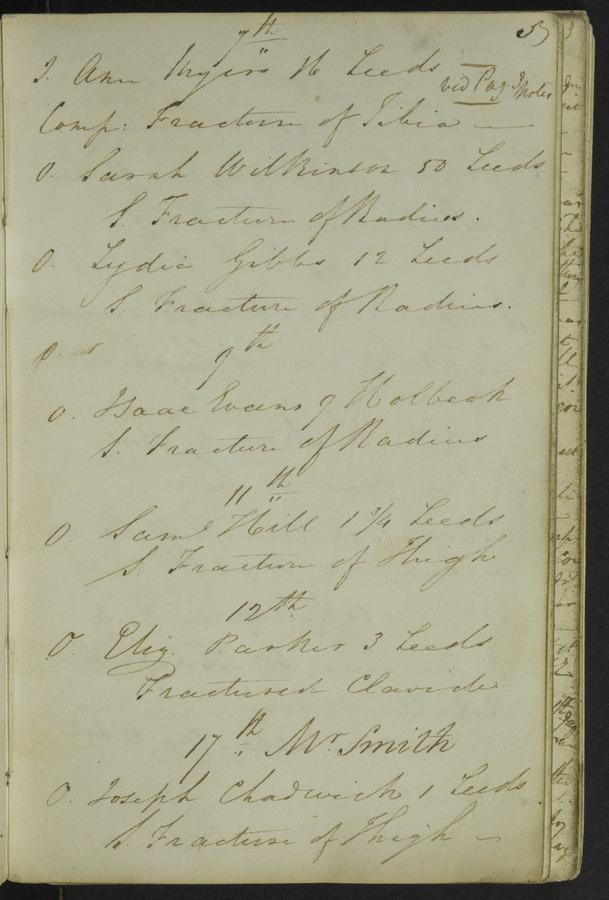 7th
I. Ann Myers 16 Leeds
vid Pag 3 Notes
Comp: Fracture of Tibia —
O. Sarah Wilkinson 50 Leeds
S. Fracture of Radius.
O. Lydia Gibbs 12 Leeds
S. Fracture of Radius.
9th
O. Isaac Evans 9 Holbeck
S. Fracture of Radius
11th
O. Saml Hill 1 3/4 Leeds
S. Fracture of Thigh
12th
O. Eliz. Parker 3 Leeds
Fractured Clavicle
17th Mr. Smith
O. Joseph Chadwick 1 Leeds
S. Fracture of Thigh —